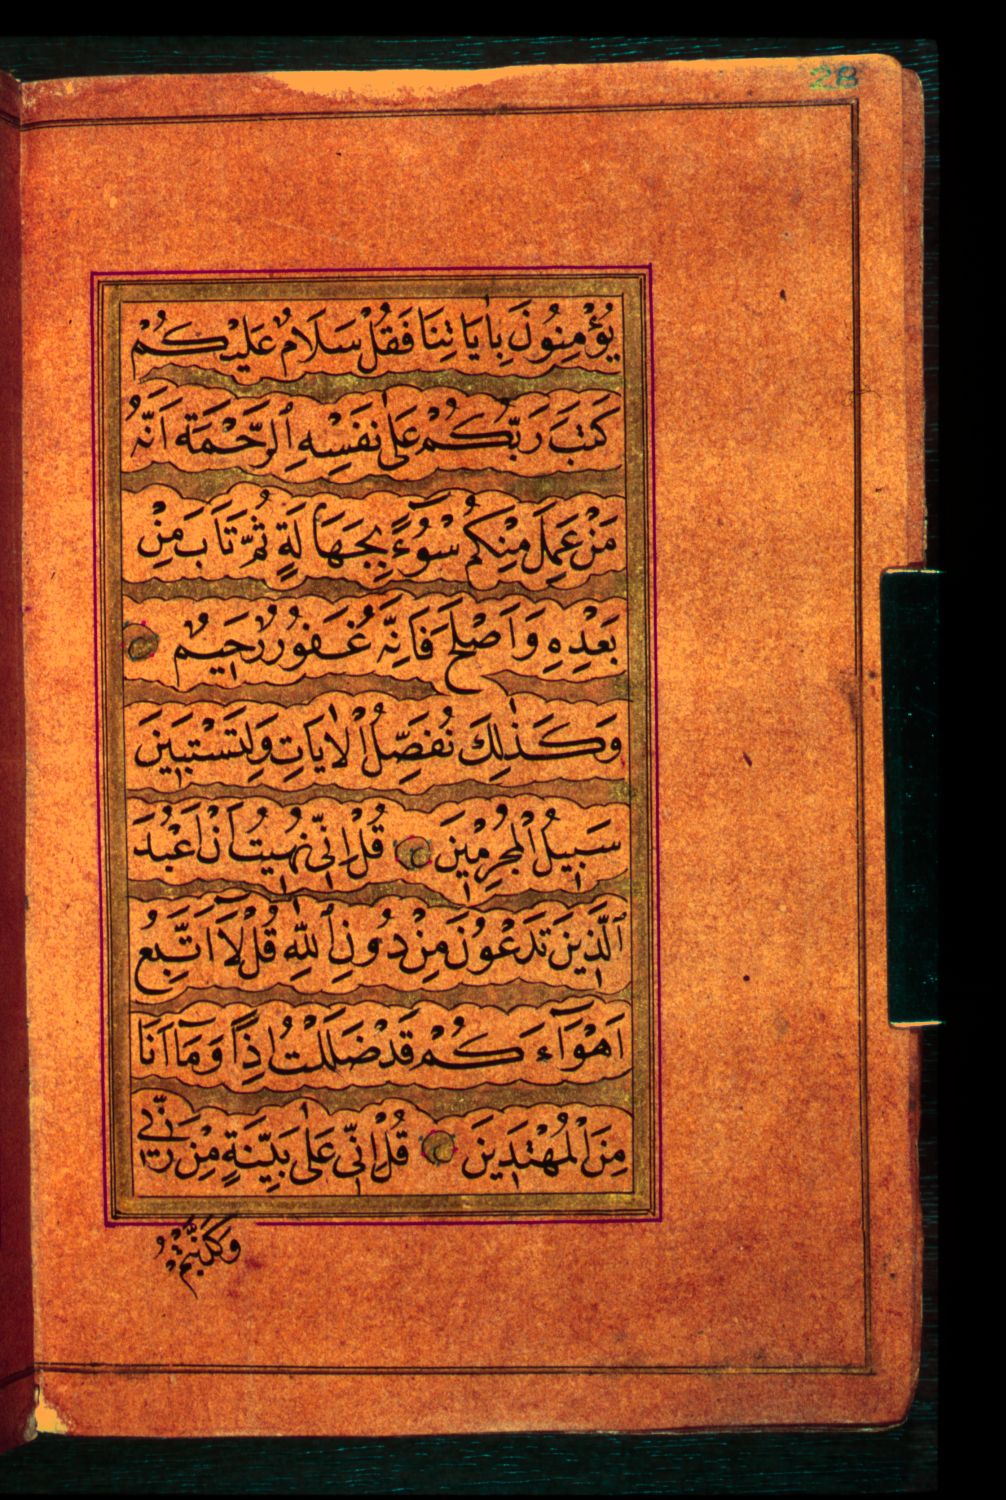 28
يُؤْمِنُونَ بِاٰيَاتِنَا فَقُلْ سَلَامٌ عَلَيْكُمْ
كَتَبَ رَبُّكُمْ عَلٰى نَفْسِهِ الرَّحْمَةَ اَنَّهُ
مَنْ عَمِلَ مِنْكُمْ سُوْٓءً بِجَهَالَةٍ ثُمَّ تَابَ مِنْ
بَعْدِهِ وَاَصْلَحَ فَاَنَّهُ غَفُورٌ رَحِيمٌ
وَكَذٰلِكَ نُفَصِّلُ الْاٰيَاتِ وَلِتَسْتَبِينَ
سَبِيلُ الْمُجْرِمِينَ قُلْ اِنِّى نُهِيتُ اَنْ اَعْبُدَ
الَّذِينَ تَدْعُونَ مِنْ دُونِ اللّٰهِ قُلْ لَٓا اَتَّبِعُ
اَهْوَٓاءَكُمْ قَدْ ضَلَلْتُ اِذًا وَمَٓا اَنَا
مِنَ الْمُهْتَدِينَ قُلْ اِنِّى عَلٰى بَيِّنَةٍ مِنْ رَبِّى
وَكَذَّبْتُمْ